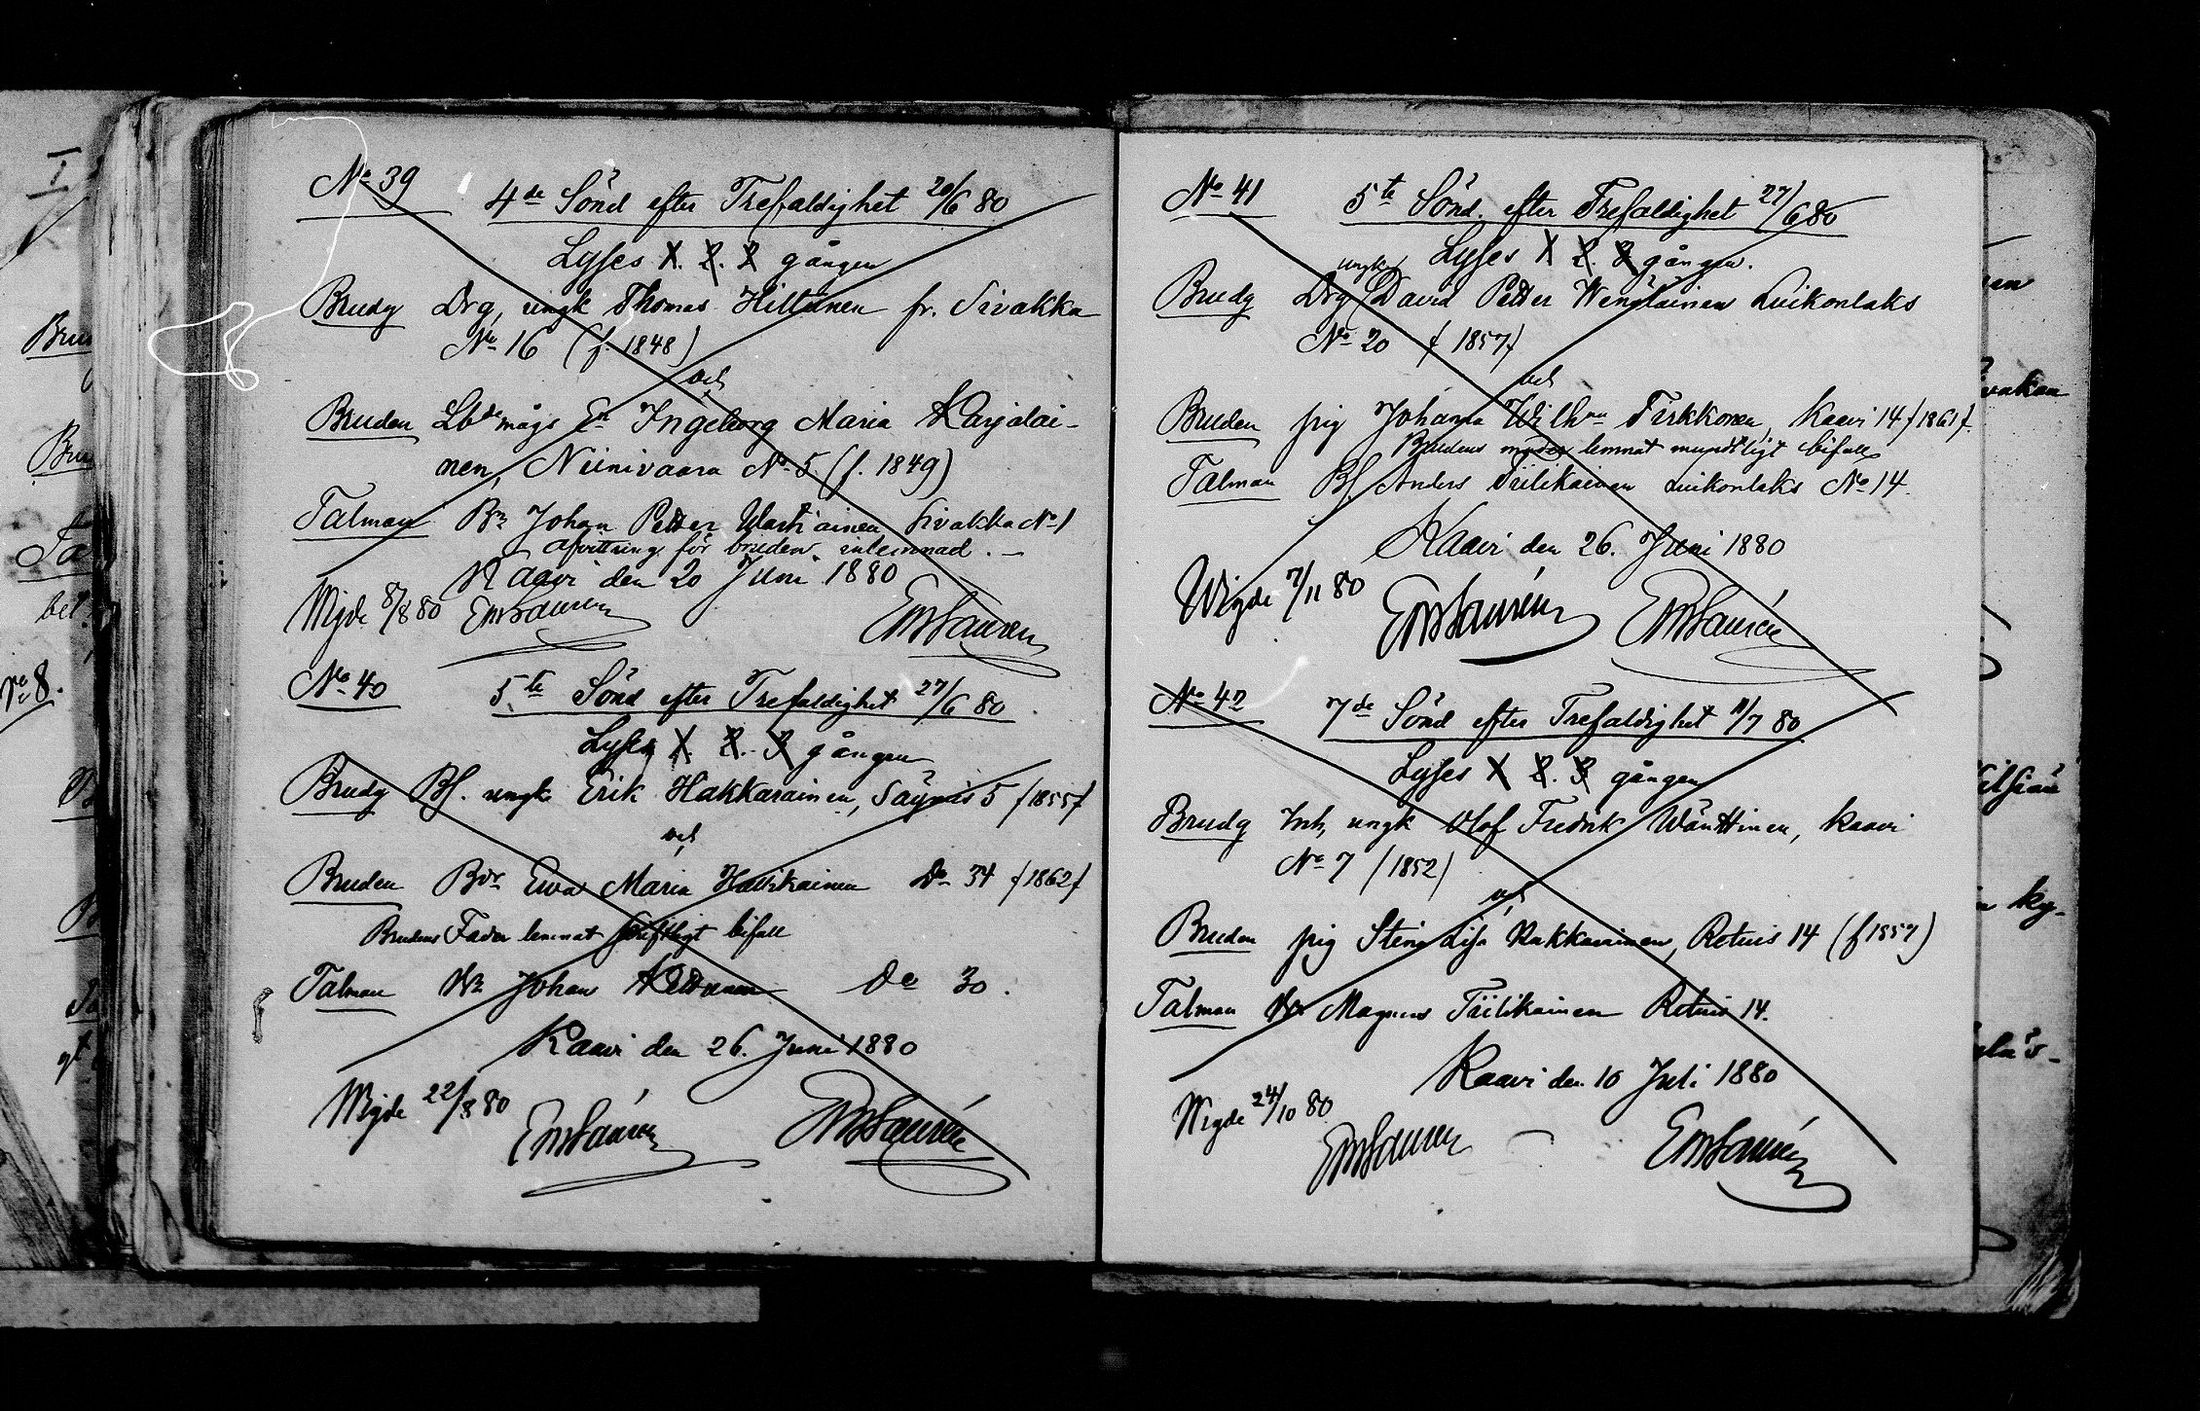 No 39
4de Sönd efter Trefaldighet 20/6 80
Lyses 1. 2. 3 gången
Brudg Drg, ungk Thomas Hiltunen fr. Sivakka
No 16 (f. 1848)
och
Bruden Lbdemågs Er Ingeborg Maria Karjalai-
nen, Niinivaara No 5 (f. 1849)
Talman Bn Johan Petter Wartiainen Sivakka No 1
afvittring för bruden inlemnad. —
Kaavi den 20 Juni 1880
Wigde 8/8 80 EmSaurén EmSaurén
No 40
5te Sönd efter Trefaldighet 27/6 80
Lyses 1. 2. 3 gången
Brudg Bf. ungk Erik Hakkarainen, Säyneis 5 f 1855 f
och
Bruden Bdr Ewa Maria Do 34 f 1862 f
Brudens Fader lemnat skriftligt bifall
Talman Johan Do 30.
Kaavi den 26. Juni 1880
Wigde 22/8 80 EmSaurén EmSaurén
No 41
5te Sönd. efter Trefaldighet 27/6 80
Lyses 1 2. 3 gången.
ungk
Brudg Drg David Petter Wenäläinen Luikonlaks
No 20 f 1857 f
och
Bruden pig Johanna Wilhna Tirkkonen, Kaavi 14 f 1861 f
Brudens moder lemnat mundtligt bifall
Talman Bf Anders Tiilikainen Luikonlaks No 14.
Kaavi den 26. Juni 1880
Wigde 7/11 80 EmSaurén EmSaurén
No 42
7de Sönd efter Trefaldighet 11/7 80
Lyses 1 2. 3 gången
Brudg Inh, ungk Olof Fredrik Wänttinen, Kaavi
No 7 (1852)
och
Bruden pig Stina Lisa Rakkarainen, Retuis 14 (f 1857)
Talman Magnus Tiilikainen Retuis 14.
Kaavi den 10 Juli 1880
Wigde 24/10 80
EmSaurén EmSaurén